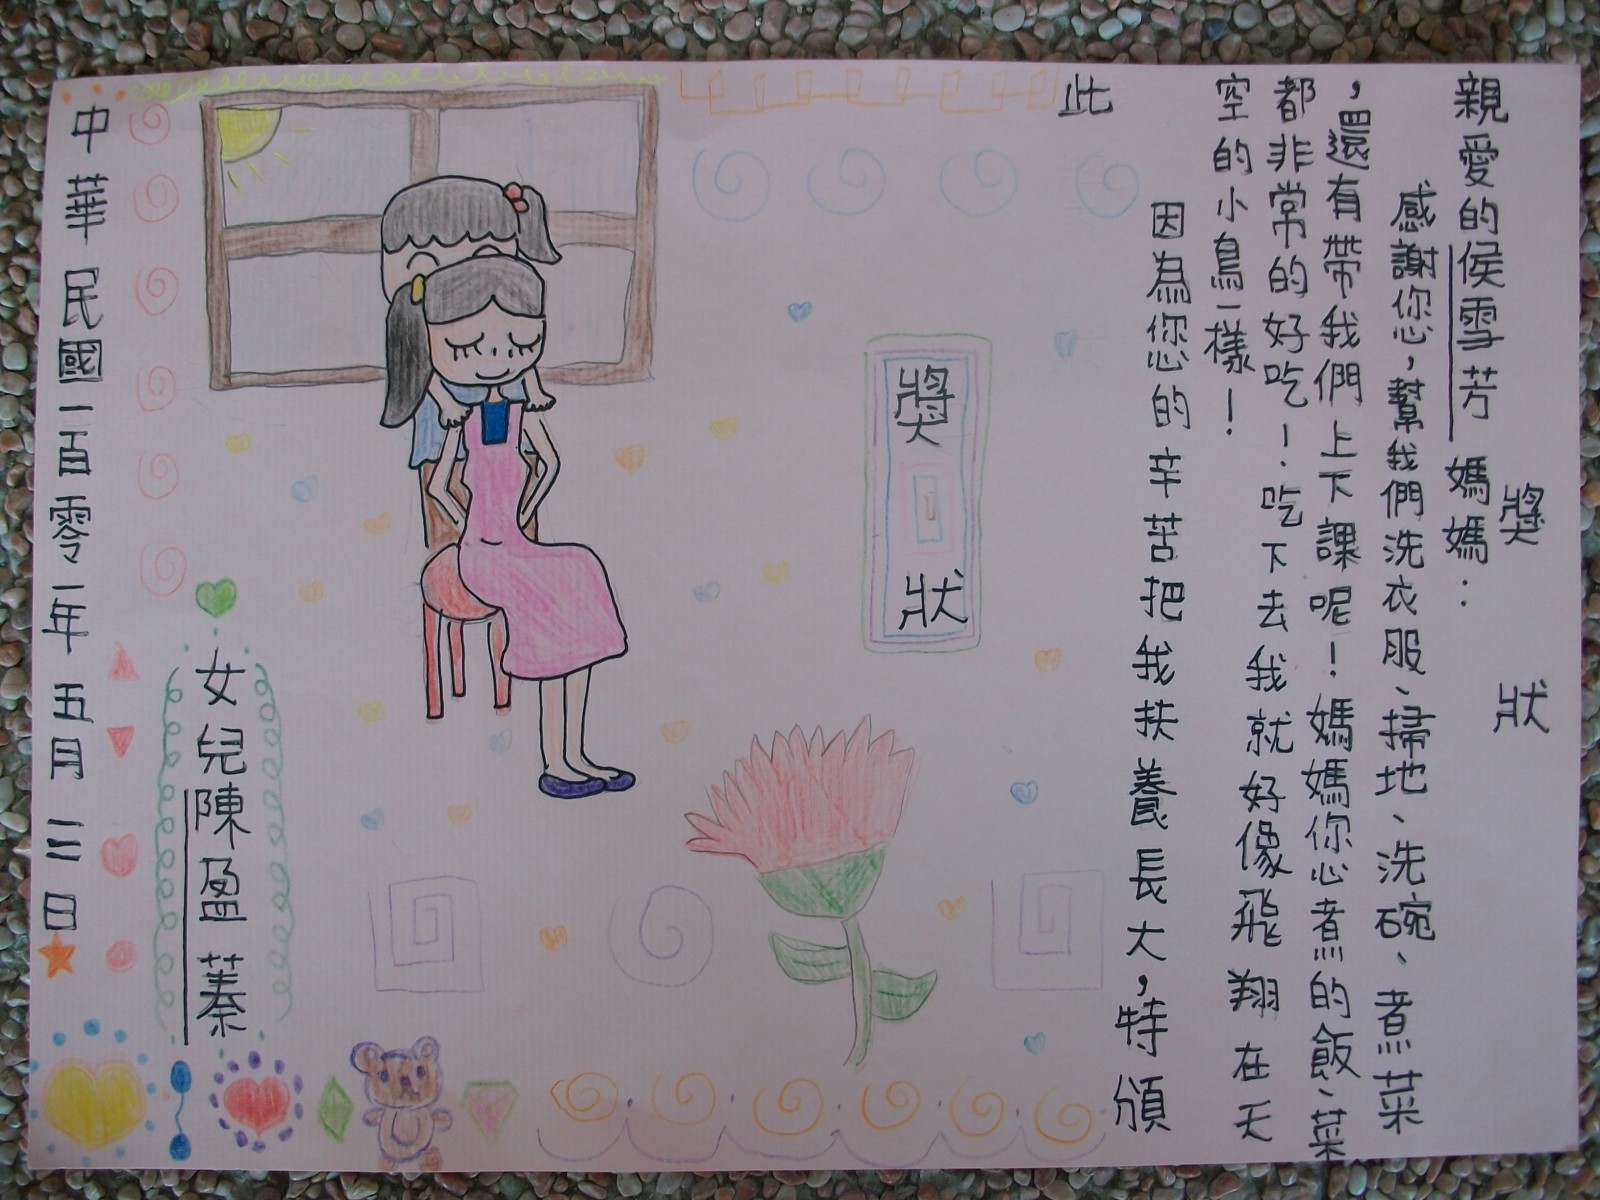 獎狀
親愛的侯雪芳媽媽：
感謝您，幫我們洗衣服、掃地、洗碗、煮菜
，還有帶我們上下課呢！媽媽您煮的飯、菜
都非常的好吃！吃下去我就好像飛翔在天
空的小鳥一樣！
因為您的辛苦把我扶養長大，特頒
此
獎狀
女兒陳盈蓁
中華民國一百零一年五月三日